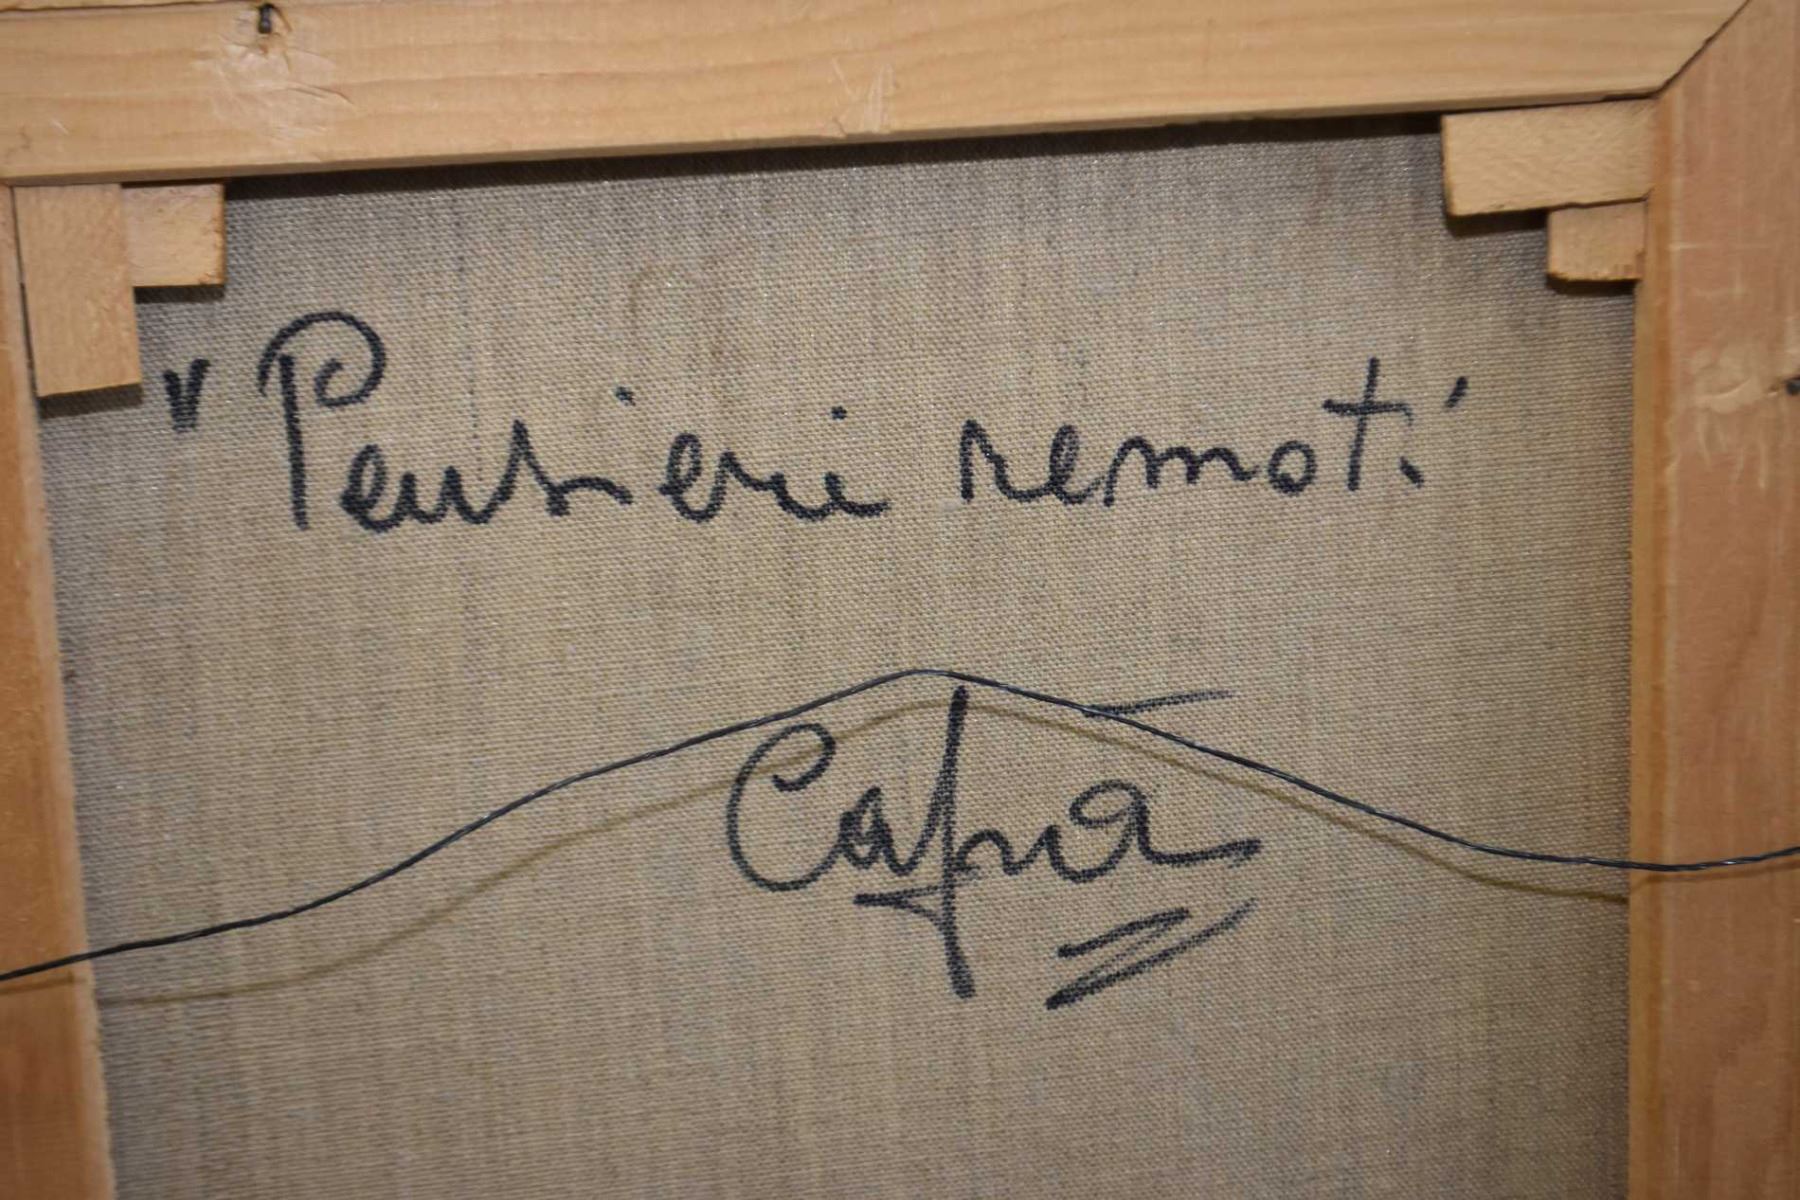 "Pensieri remoti"
Capra